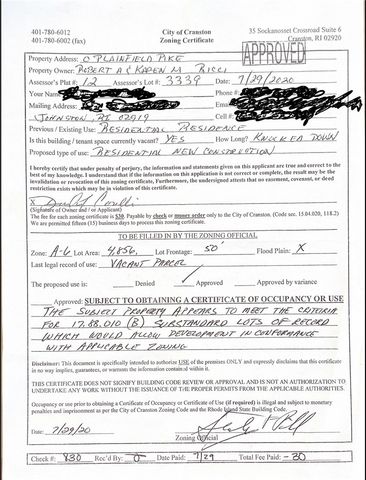 401-780-6012 City of Cranston 35 Sockanosset Crossroad Suite 6
401-780-6002 (fax) Zoning Certificate Cranston, RI 02920
APPROVED
Property Address: 0 PLAINFIELD PIKE
Property Owner: ROBERT A & KAREN M RICCI
Assessor's Plat #: 12 Assessor's Lot #: 3339 Date: 7/29/2020
Your Name Phone #:
Mailing Address Ema
JOHNSTON, RI 02919 Cell #:
Previous / Existing Use: RESIDENTIAL RESIDENCE
Is this building / tenant space currently vacant? YES How Long? KNOCKED DOWN
Proposed type of use: RESIDENTIAL NEW CONSTRUCTION
I hereby certify that under penalty of perjury, the information and statements given on this applicant are true and correct to the
best of my knowledge. I understand that if the information on this application is not correct or complete, the result may be the
invalidation or revocation of this zoning certificate. Furthermore, the undersigned attests that no easement, covenant, or deed
restriction exists which may be in violation of this certificate.
X
(Signature of Owner and / or Applicant)
The fee for each zoning certificate is $30. Payable by check or money order only to the City of Cranston. (Code sec. 15.04.020, 118.2)
We are permitted fifteen (15) business days to process this zoning certificate.
TO BE FILLED IN BY THE ZONING OFFICIAL
Zone: A-6 Lot Area: 4,856 Lot Frontage: 50' Flood Plain: X
Last legal record of use: VACANT PARCEL
The proposed use is: Denied ✓ Approved Approved by variance
Approved: SUBJECT TO OBTAINING A CERTIFICATE OF OCCUPANCY OR USE
THE SUBJECT PROPERTY APPEARS TO MEET THE CRITERIA
FOR 17.88.010 (B) SUBSTANDARD LOTS OF RECORD
WHICH WOULD ALLOW DEVELOPMENT IN CONFORMANCE
WITH APPLICABLE ZONING
Disclaimer: This document is specifically intended to authorize USE of the premises ONLY and expressly disclaims that this certificate
in no way implies, guarantees, or warrants the information contained within it.
THIS CERTIFICATE DOES NOT SIGNIFY BUILDING CODE REVIEW OR APPROVAL AND IS NOT AN AUTHORIZATION TO
UNDERTAKE ANY WORK WITHOUT THE ISSUANCE OF THE PROPER PERMITS FROM THE APPLICABLE AUTHORITIES.
Occupancy or use prior to obtaining a Certificate of Occupancy or Certificate of Use (if required) is illegal and subject to monetary
penalties and imprisonment as per the City of Cranston Zoning Code and the Rhode Island State Building Code.
Date: 7/29/20
Zoning Official
Check #: 830 Rec'd By: Date Paid: 7/29 Total Fee Paid: -30